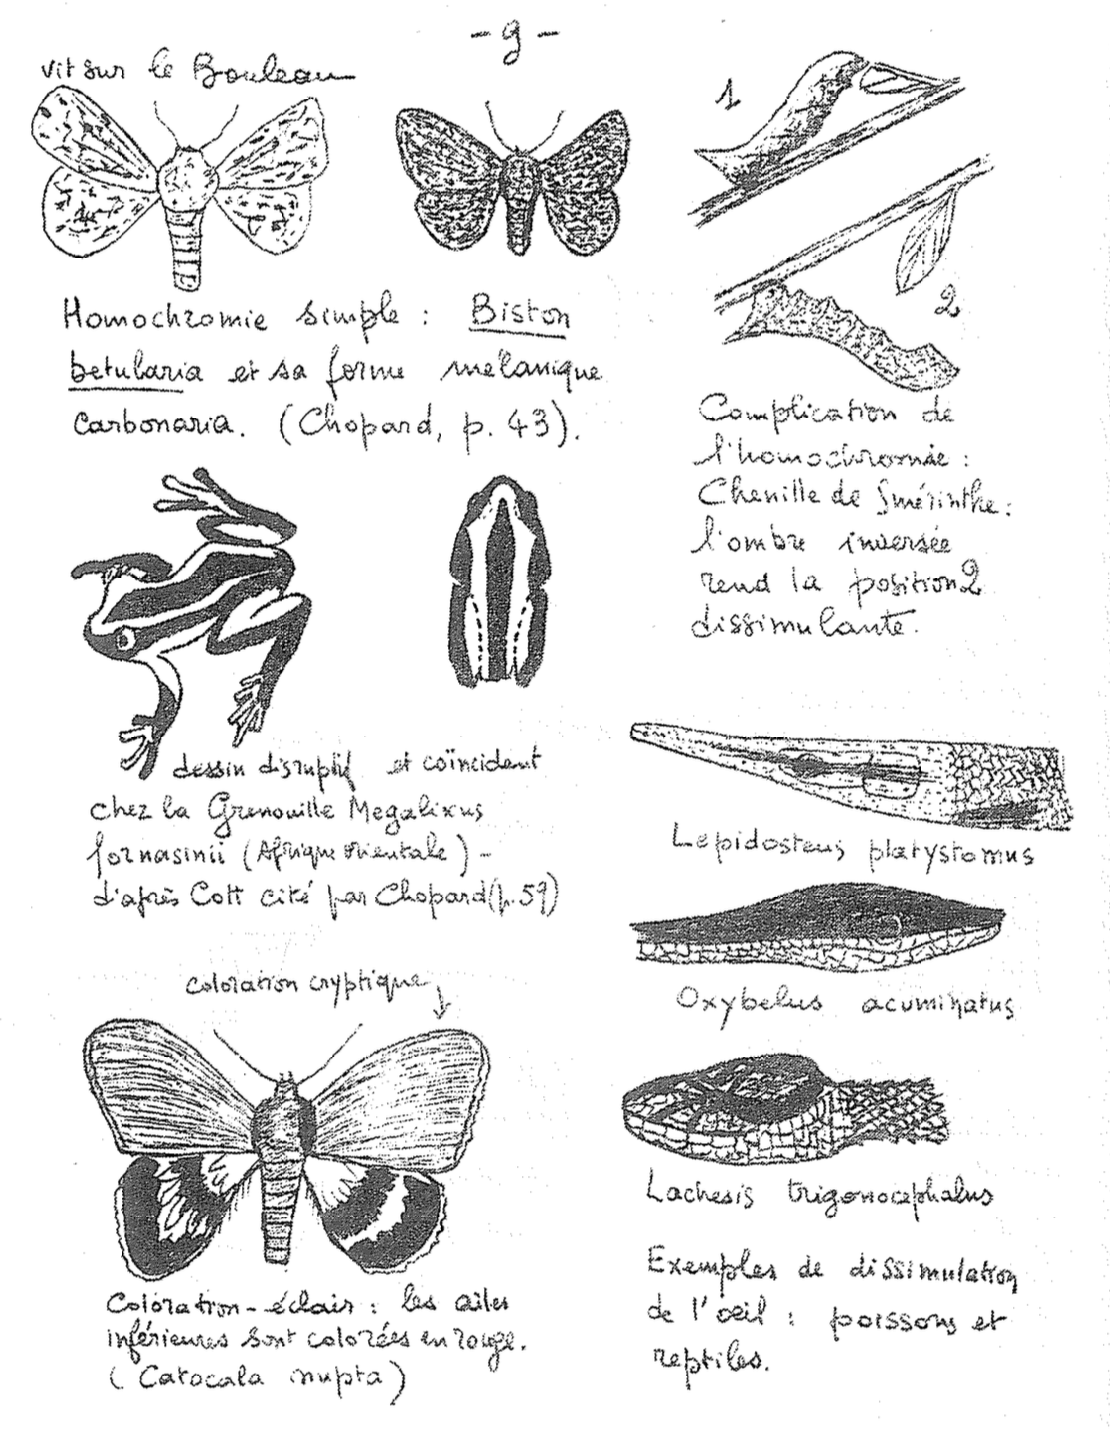 - 9 -
vit sur le Bouleau
Homochromie simple : Biston
betularia et sa forme mélanique
carbonaria. (Chopard, p. 43).
1
2
Complication de
l'homochromie :
Chenille de Smérinthe :
l'ombre inversée
rend la position 2
dissimulante.
dessin disruptif et coïncident
chez la Grenouille Megalixus
fornasinii (Afrique orientale) -
d'après Cott cité par Chopard (p. 59)
Lepidosteus platystomus
Oxybelus acuminatus
Lachesis trigonocephalus
Exemples de dissimulation
de l'oeil : poissons et
reptiles.
coloration cryptique
Coloration-éclair : les ailes
inférieures sont colorées en rouge.
( Catocala nupta )